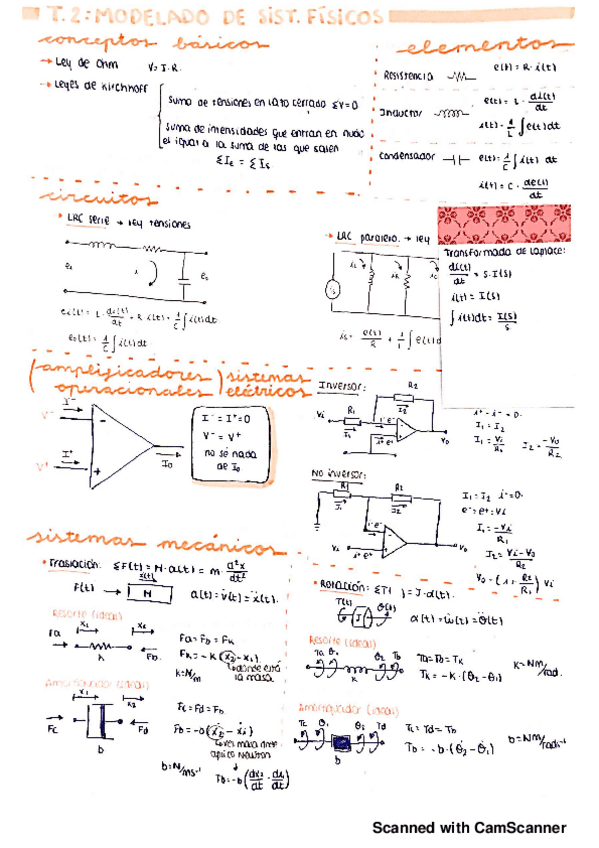 T.2: MODELADO DE SIST. FÍSICOS
conceptos básicos
→ Ley de Ohm V = I·R.
→ Leyes de Kirchhoff
Suma de tensiones en lazo cerrado ΣV=0
Suma de intensidades que entran en nudo
es igual a la suma de las que salen
ΣIe = ΣIs
elementos
Resistencia e(t) = R·i(t)
Inductor e(t) = L · di(t)/dt
i(t) = 1/L ∫e(t)dt
Condensador e(t) = 1/C ∫i(t) dt
i(t) = C · de(t)/dt
circuitos
• LRC serie → ley tensiones
ei i eo
ei(t) = L · di(t)/dt + R·i(t) + 1/C ∫i(t)dt
eo(t) = 1/C ∫i(t)dt
• LRC paralelo → ley
is iL iR iC
is = e(t)/R + 1/L ∫e(t)d
Transformada de Laplace:
di(t)/dt = S·I(S)
i(t) = I(S)
∫i(t)dt = I(S)/S
(amplificadores operacionales) sistemas eléctricos
V⁻ I⁻
V⁺ I⁺
I0
I⁻ = I⁺ = 0
V⁻ = V⁺
no sé nada
de I0
Inversor:
Vi R1 I1 R2 I2 V0
i⁺ e⁺
i⁺ = i⁻ = 0
I1 = I2
I1 = Vi/R1 I2 = -V0/R2
No inversor:
R1 I1 R2 I2
i⁻ e⁻
Vi i⁺ e⁺ V0
I1 = I2 i⁻=0
e⁻=e⁺=Vi
I1 = -Vi/R1
I2 = Vi-V0/R2
V0 = (1+ R2/R1) Vi
sistemas mecánicos
• Traslación: ΣF(t) = M·a(t) = m · d²x/dt²
F(t) → M x(t) a(t) = v̇(t) = ẍ(t).
Resorte (ideal)
Fa x1 x2 k Fb
Fa = Fb = Fk
Fk = -k (x2 - x1)
donde está
la masa
k = N/m
Amortiguador (ideal)
x1 x2
Fc Fd
b
Fc = Fd = Fb
Fb = -b (ẋ2 - ẋ1)
Newton
Fb = -b (dx2/dt - dx1/dt)
b = N/ms⁻¹
• Rotación: ΣT( ) = J·α(t).
T(t) J θ(t) α(t) = ω̇(t) = θ̈(t)
Resorte (ideal)
Ta θ1 k θ2 Tb
Ta = Tb = Tk
Tk = -k · (θ2 - θ1)
k = Nm/rad.
Amortiguador (ideal)
Tc θ1 θ2 Td
b
Tc = Td = Tb
Tb = -b · (θ̇2 - θ̇1)
b = Nm/rad s⁻¹
Scanned with CamScanner